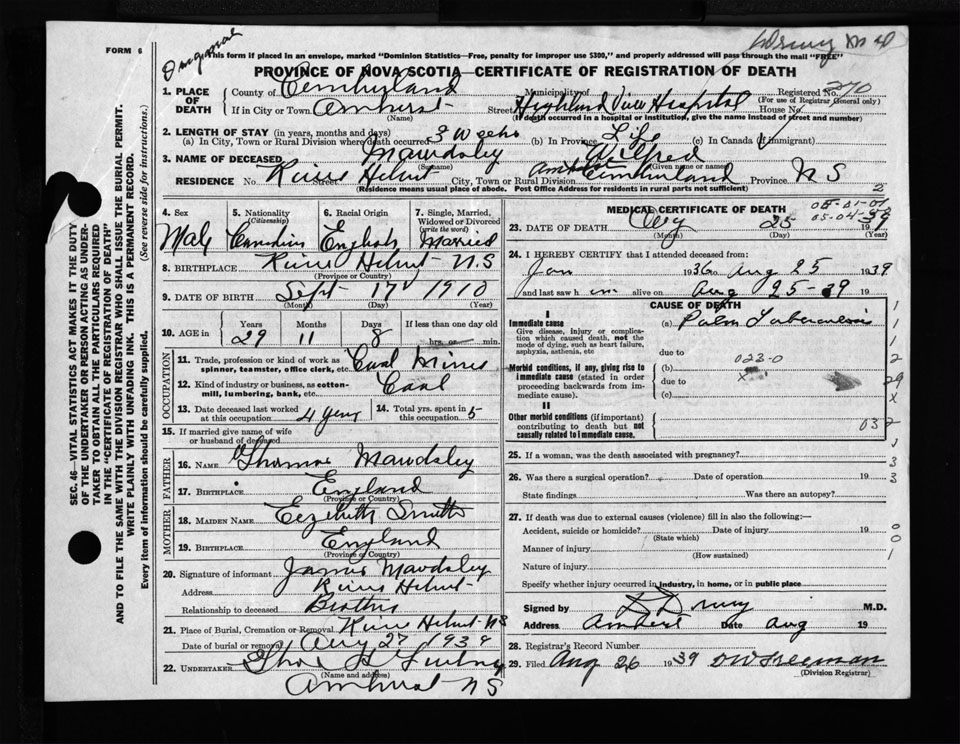 FORM 6
Original
Drury MD
This form if placed in an envelope, marked "Dominion Statistics—Free, penalty for improper use $300," and properly addressed will pass through the mail "FREE"
PROVINCE OF NOVA SCOTIA—CERTIFICATE OF REGISTRATION OF DEATH
1. PLACE OF DEATH County of Cumberland Municipality of Registered No. 270
(For use of Registrar General only)
If in City or Town Amherst Street Highland View Hospital House No.
(Name) (If death occurred in a hospital or institution, give the name instead of street and number)
2. LENGTH OF STAY (in years, months and days)
(a) In City, Town or Rural Division where death occurred 3 Weeks (b) In Province Life (c) In Canada (if immigrant)
3. NAME OF DECEASED Mawdsley Wilfred
(Surname) (Given name or names)
RESIDENCE No. Street River Hebert City, Town or Rural Division Cumberland Province N S
(Residence means usual place of abode. Post Office Address for residents in rural parts not sufficient)
2
SEC. 46—VITAL STATISTICS ACT MAKES IT THE DUTY
OF THE UNDERTAKER OR PERSON ACTING AS UNDER-
TAKER TO OBTAIN ALL THE PARTICULARS REQUIRED
IN THE "CERTIFICATE OF REGISTRATION OF DEATH"
AND TO FILE THE SAME WITH THE DIVISION REGISTRAR WHO SHALL ISSUE THE BURIAL PERMIT.
WRITE PLAINLY WITH UNFADING INK. THIS IS A PERMANENT RECORD.
Every item of information should be carefully supplied. (See reverse side for instructions.)
4. Sex 5. Nationality (Citizenship) 6. Racial Origin 7. Single, Married, Widowed or Divorced (write the word)
Male Canadian English Married
8. BIRTHPLACE River Hebert N.S
(Province or Country)
9. DATE OF BIRTH Sept 17 1910
(Month) (Day) (Year)
10. AGE in Years Months Days If less than one day old
29 11 8 hrs. or min.
OCCUPATION
11. Trade, profession or kind of work as spinner, teamster, office clerk, etc. Coal Miner
12. Kind of industry or business, as cotton-mill, lumbering, bank, etc. Coal
13. Date deceased last worked at this occupation 4 years 14. Total yrs. spent in this occupation 5
15. If married give name of wife or husband of deceased
FATHER
16. Name Thomas Mawdsley
17. Birthplace England
(Province or Country)
MOTHER
18. Maiden Name Elizabeth Smith
19. Birthplace England
(Province or Country)
20. Signature of informant James Mawdsley
Address River Hebert
Relationship to deceased Brother
21. Place of Burial, Cremation or Removal River Hebert NS
Date of burial or removal Aug 27 1939
22. UNDERTAKER
(Name and address)
Amherst N S
MEDICAL CERTIFICATE OF DEATH
23. DATE OF DEATH Aug 25 1939
(Month) (Day) (Year)
24. I HEREBY CERTIFY that I attended deceased from:
Jan 1936 to Aug 25 1939
and last saw h im alive on Aug 25-39 19
CAUSE OF DEATH
I
Immediate cause (a) Pulm Tuberculosis
Give disease, injury or complication which caused death, not the mode of dying, such as heart failure, asphyxia, asthenia, etc
due to
023-0
Morbid conditions, if any, giving rise to immediate cause (stated in order proceeding backwards from immediate cause). (b) x
due to
(c)
II
Other morbid conditions (if important) contributing to death but not causally related to immediate cause. 032
1
1
2
29
x
3
3
0
0
1
25. If a woman, was the death associated with pregnancy?
26. Was there a surgical operation? Date of operation 19
State findings Was there an autopsy?
27. If death was due to external causes (violence) fill in also the following:—
Accident, suicide or homicide? Date of injury 19
(State which)
Manner of injury
(How sustained)
Nature of injury
Specify whether injury occurred in industry, in home, or in public place
Signed by Drury M.D.
Address Amherst Date Aug 19
28. Registrar's Record Number
29. Filed Aug 26 1939 DW Freeman
(Division Registrar)